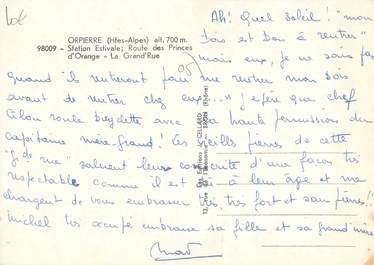 ORPIERRE (Htes-Alpes) alt. 700 m.
98009 - Station Estivale; Route des Princes
d'Orange - La Grand'Rue
Ah! Quel soleil! "mon
bois est bon à rentrer"
mais eux, je ne sais pas
quand il rentreront faire me rentrer mon bois
avant de rentrer chez eux...) j'espère que chef
Gilou roule bicyclette avec la haute permission du
capitaine mère-grand! Les vieilles pierres de cette
"Gde rue" saluent leur conscrite d'une façon très
respectable comme il est dû à leur âge et me
chargent de vous embrasser très très fort et sans pierres!!
Michel très occupé embrasse sa fille et sa grand'mère